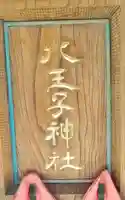 八王子神社